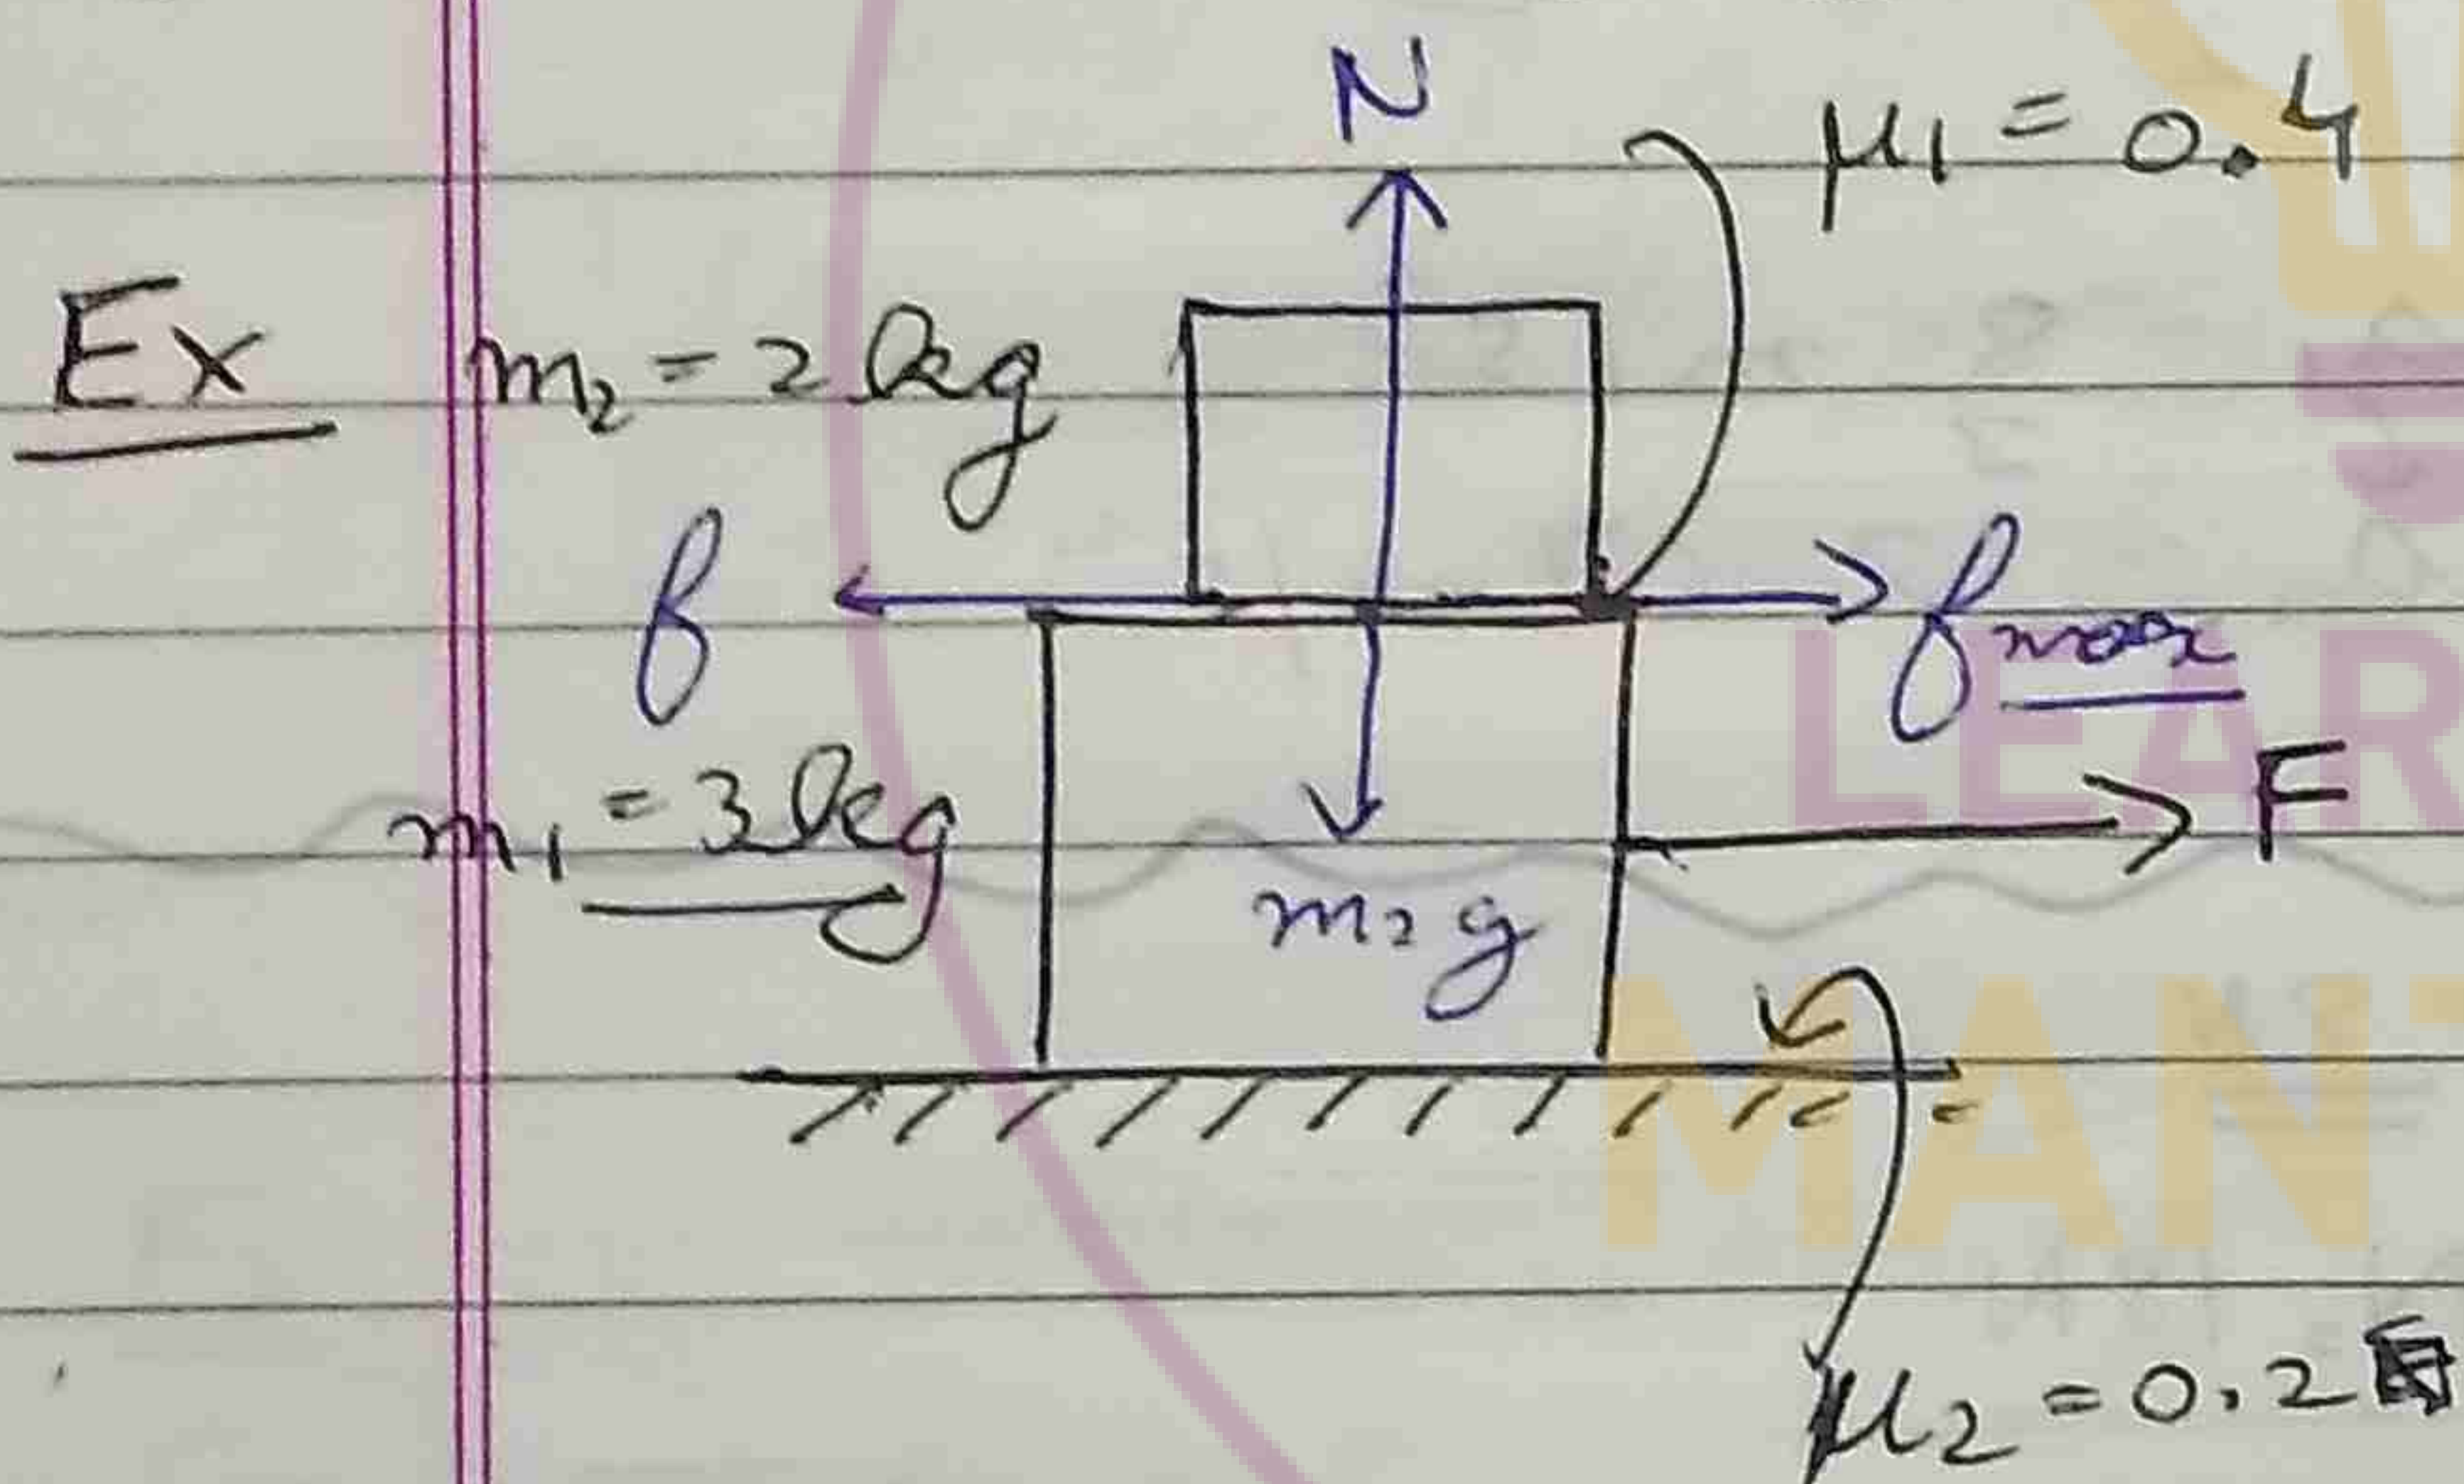 N
μ1 = 0.4
Ex
m2 = 2 kg
f
fmax
m1 = 3 kg
F
m2g
μ2 = 0.2
LEAR
MAN